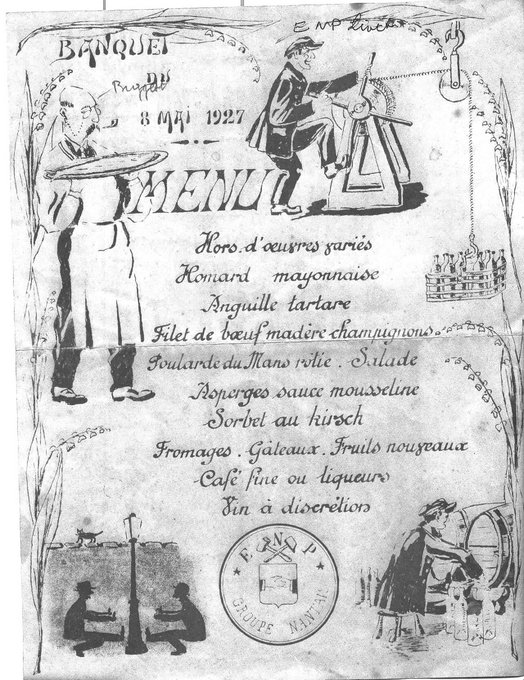 BANQUET
DU
8 MAI 1927
MENU
Hors-d'œuvres variés
Homard mayonnaise
Anguille tartare
Filet de bœuf madère champignons
Poularde du Mans rôtie. Salade
Asperges sauce mousseline
Sorbet au kirsch
Fromages. Gâteaux. Fruits nouveaux
Café fine ou liqueurs
Vin à discrétion
E N P
GROUPE NANTAIS